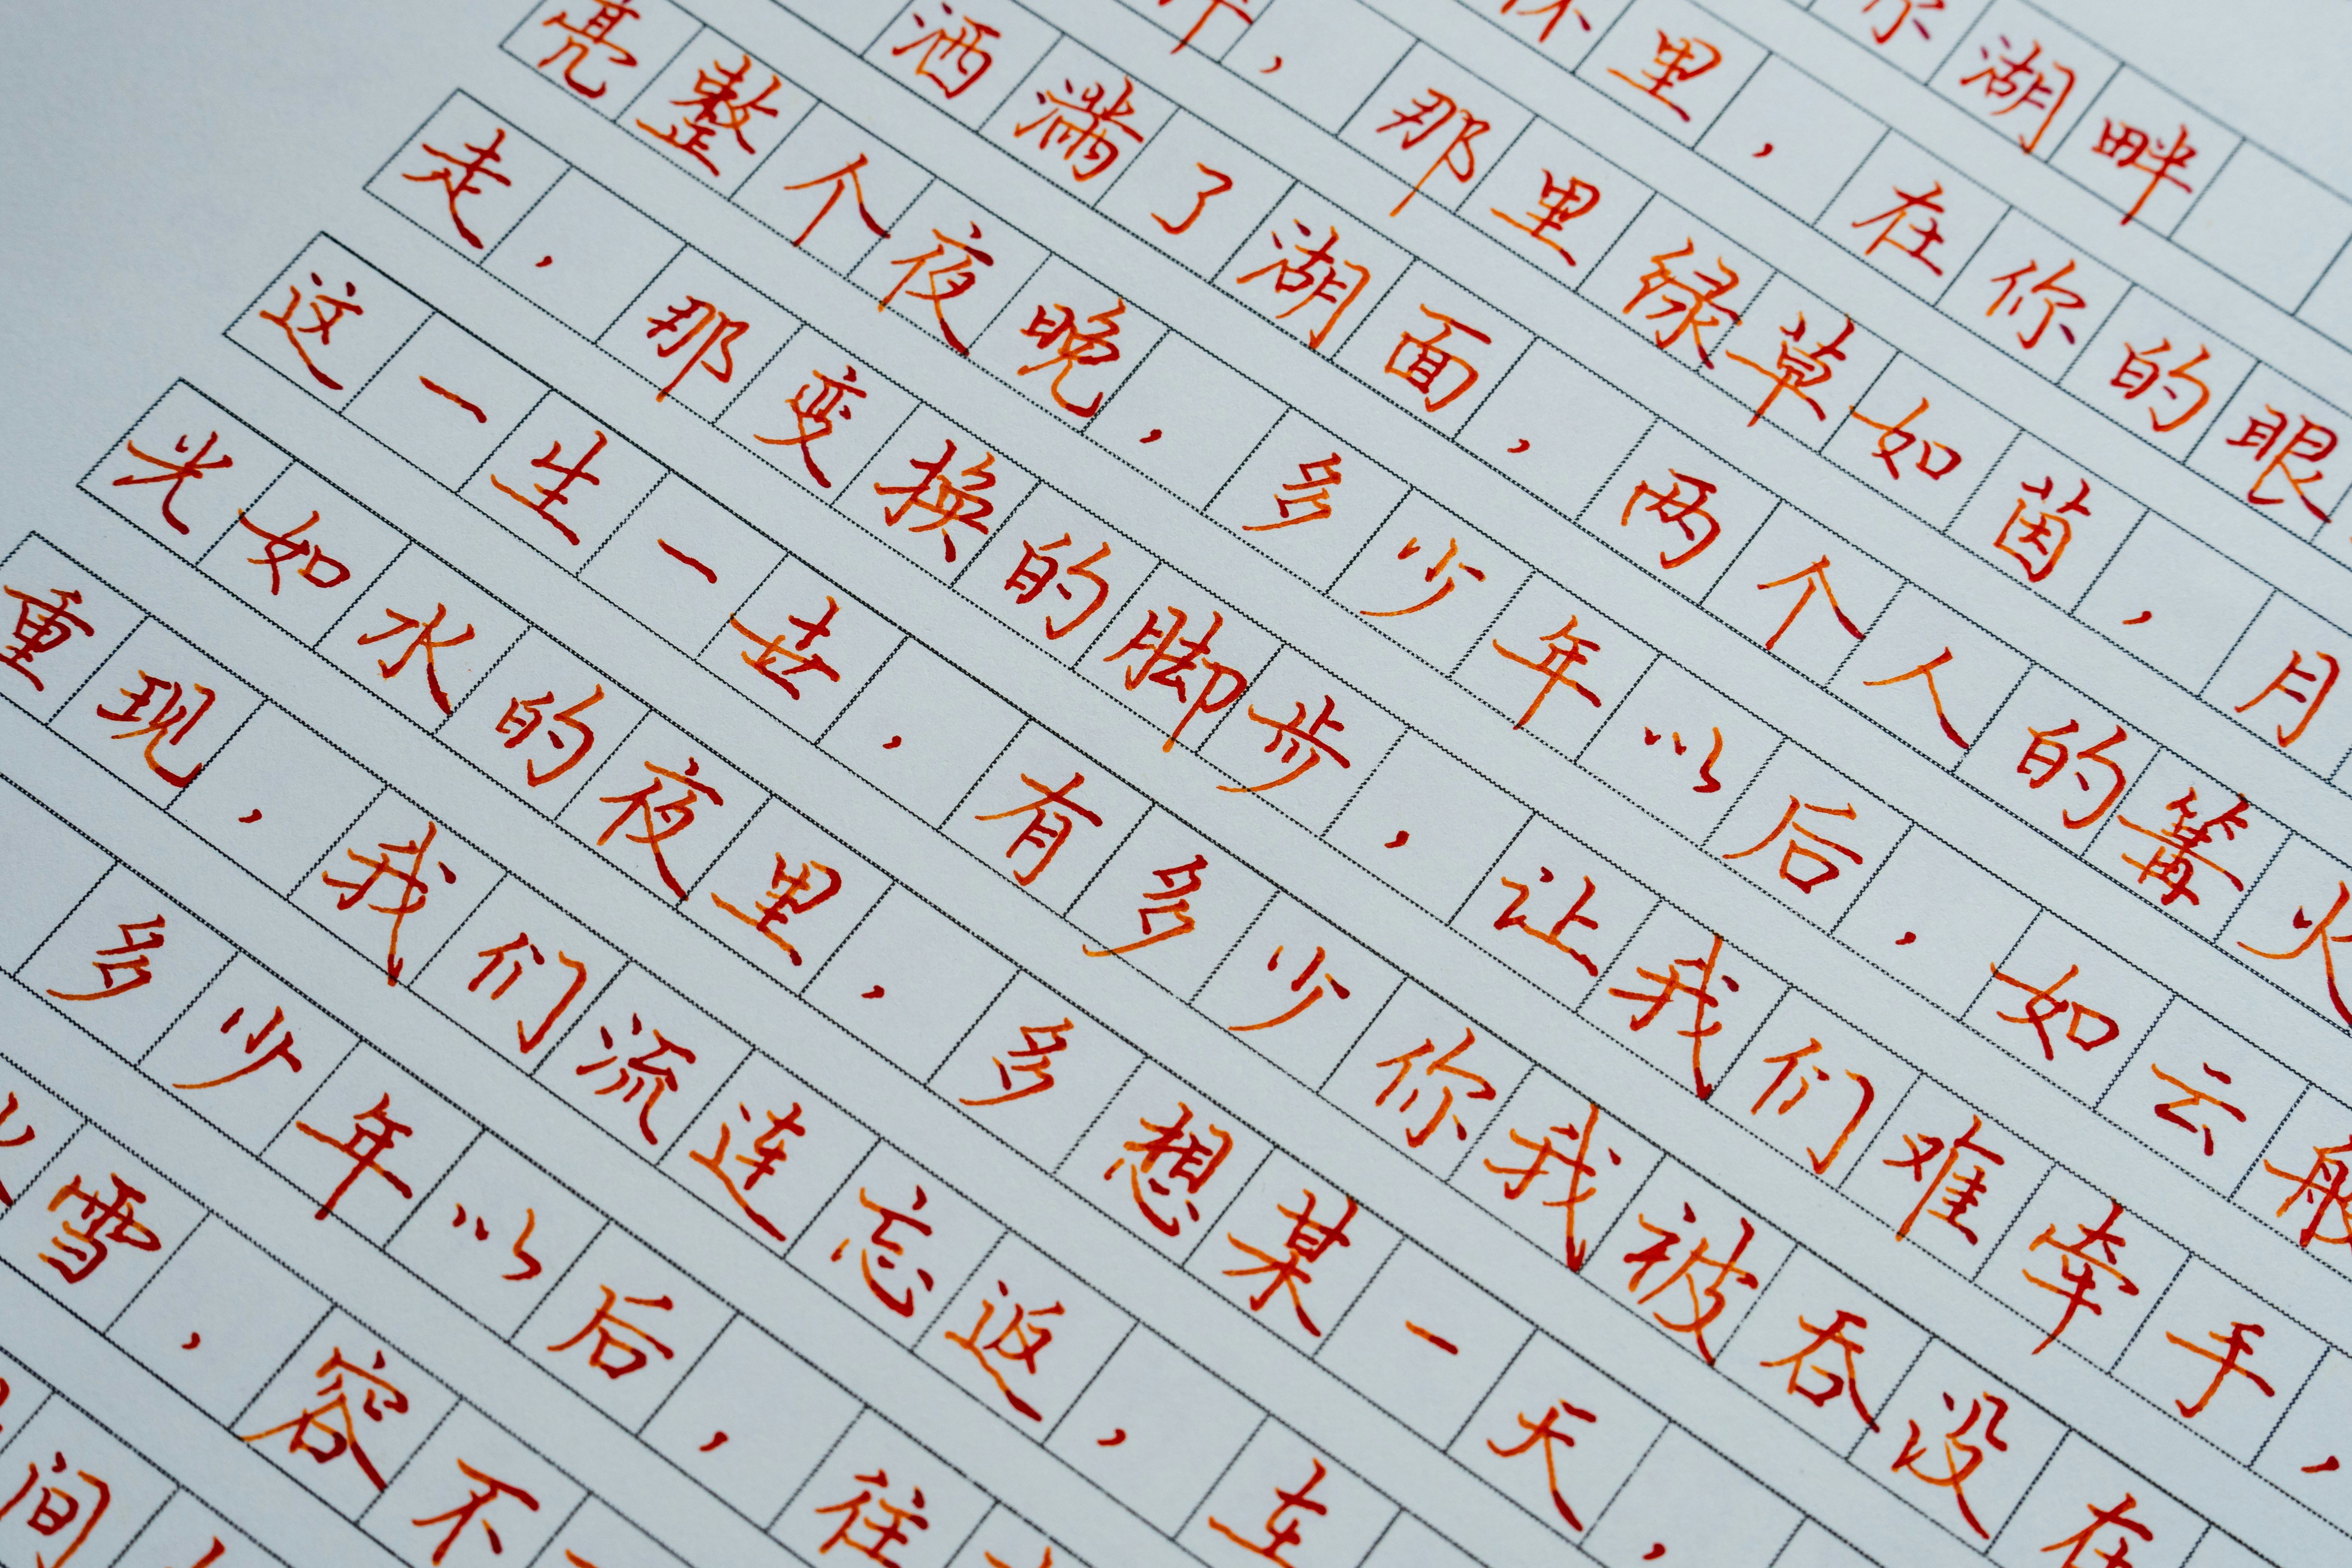 尔湖畔
怀里，在你的眼
，那里绿草如茵，月
洒满了湖面，两个人的篝火
亮整个夜晚，多少年以后，如云般
走，那变换的脚步，让我们难牵手，
这一生一去，有多少你我被吞没在
光如水的夜里，多想某一天，
重现，我们流连忘返，在
多少年以后，往
雪，容不
间